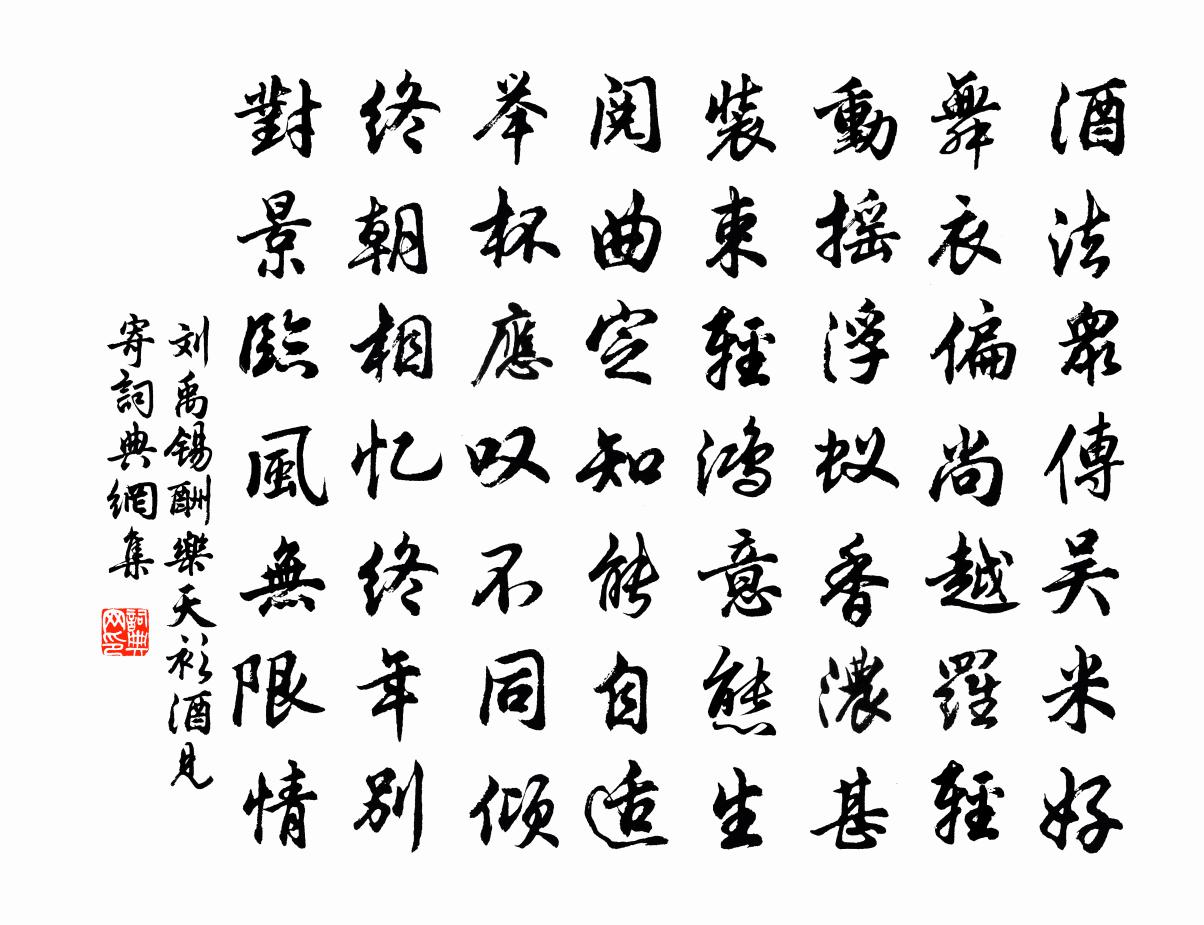 酒法衆傳吴米好
舞衣偏尚越羅輕
動摇浮蚁香濃甚
装束輕鸿意態生
阅曲定知能自适
举杯應叹不同倾
终朝相忆终年别
對景臨風無限情
刘禹锡酬樂天衫酒見
寄詞典網集
詞典网印